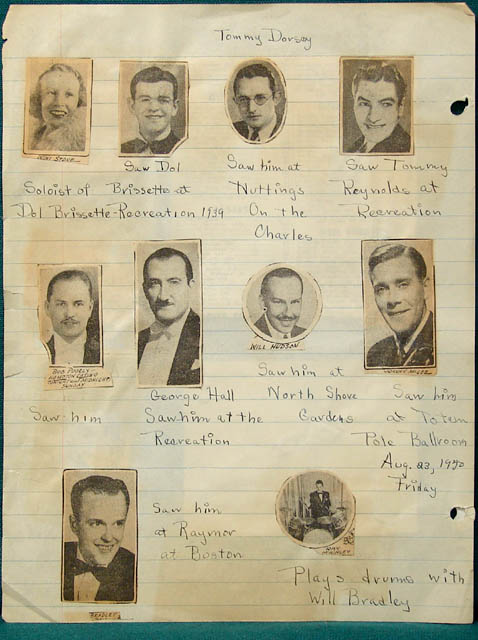 Tommy Dorsey
Saw Dol
Brissette at
Recreation 1939
Soloist of
Dol Brissette
Saw him at
Nuttings
On the
Charles
Saw Tommy
Reynolds at
Recreation
Saw him
George Hall
Saw him at the
Recreation
WILL HUDSON
Saw him at
North Shore
Gardens
Saw him
at Totem
Pole Ballroom
Aug. 23, 1940
Friday
BRADLEY
Saw him
at Raymor
at Boston
RAY
McKINLEY
Plays drums with
Will Bradley